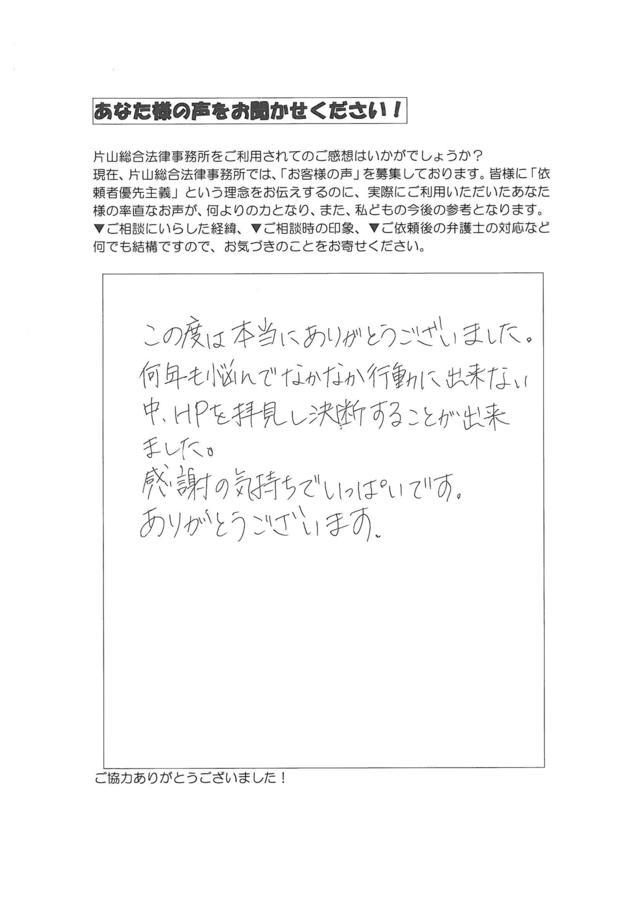 あなた様の声をお聞かせください！
片山総合法律事務所をご利用されてのご感想はいかがでしょうか？
現在、片山総合法律事務所では、「お客様の声」を募集しております。皆様に「依
頼者優先主義」という理念をお伝えするのに、実際にご利用いただいたあなた
様の率直なお声が、何よりの力となり、また、私どもの今後の参考となります。
▼ご相談にいらした経緯、▼ご相談時の印象、▼ご依頼後の弁護士の対応など
何でも結構ですので、お気づきのことをお寄せください。
この度は本当にありがとうございました。
何年も悩んでなかなか行動に出来ない
中、HPを拝見し決断することが出来
ました。
感謝の気持ちでいっぱいです。
ありがとうございます。
ご協力ありがとうございました！